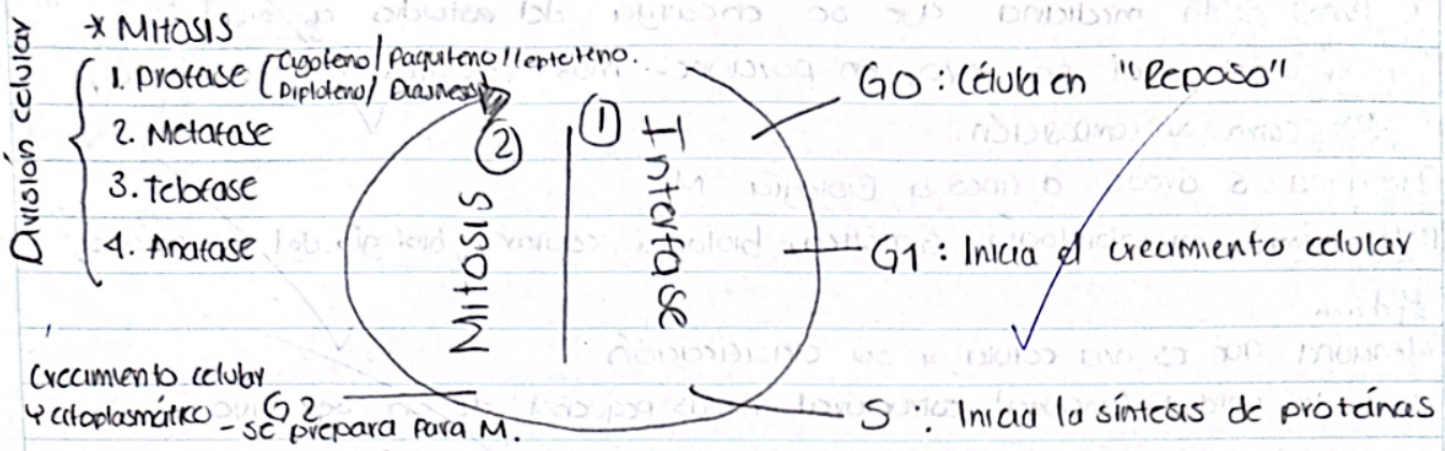 División celular
* Mitosis
1. Profase [Cigoteno/Paquiteno/leptoteno.
Diploteno/
2. Metafase
3. Telofase
4. Anafase
② Mitosis
① Interfase
G0: Célula en "Reposo"
G1: Inicia el crecimiento celular
S: Inicia la síntesis de proteínas
Crecimiento celular
y citoplasmático - G2
se prepara para M.